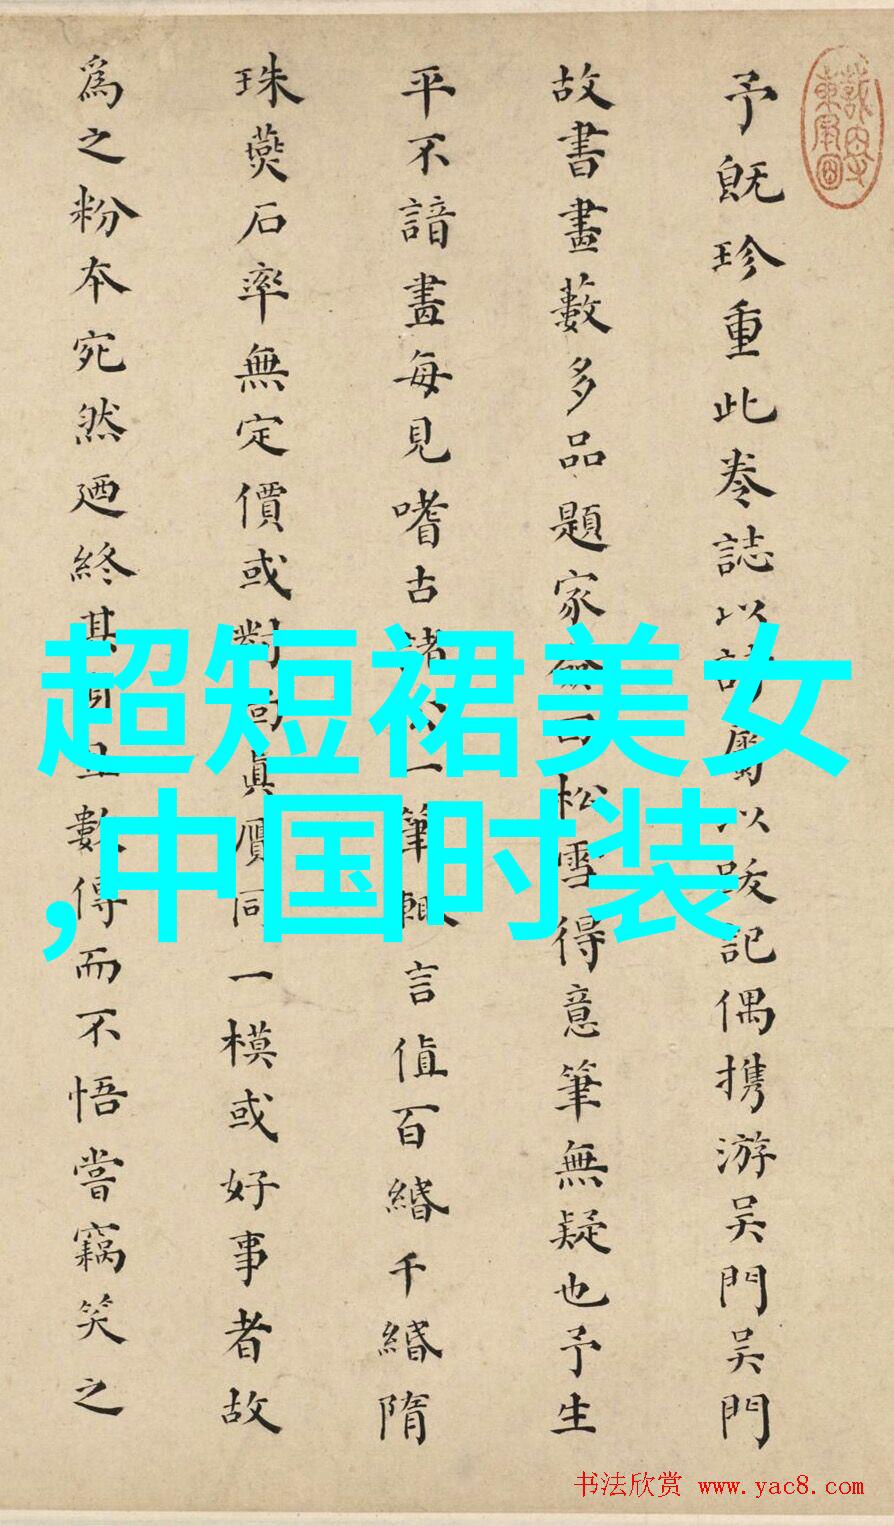 予旣珍重此卷誌以詩以跋記偶携游吴門吴門
故書畫藪多品題家僉曰松雪得意筆無疑也予生
平不諳畫每見嗜古諸一筆輒言值百緡千緡隋
珠燕石率無定價或對真贋同一模或好事者故
為之粉本宛然迺終其且數傳而不悟嘗竊笑之
超短裙美女
,中国时装
书法欣赏 www.yac8.com